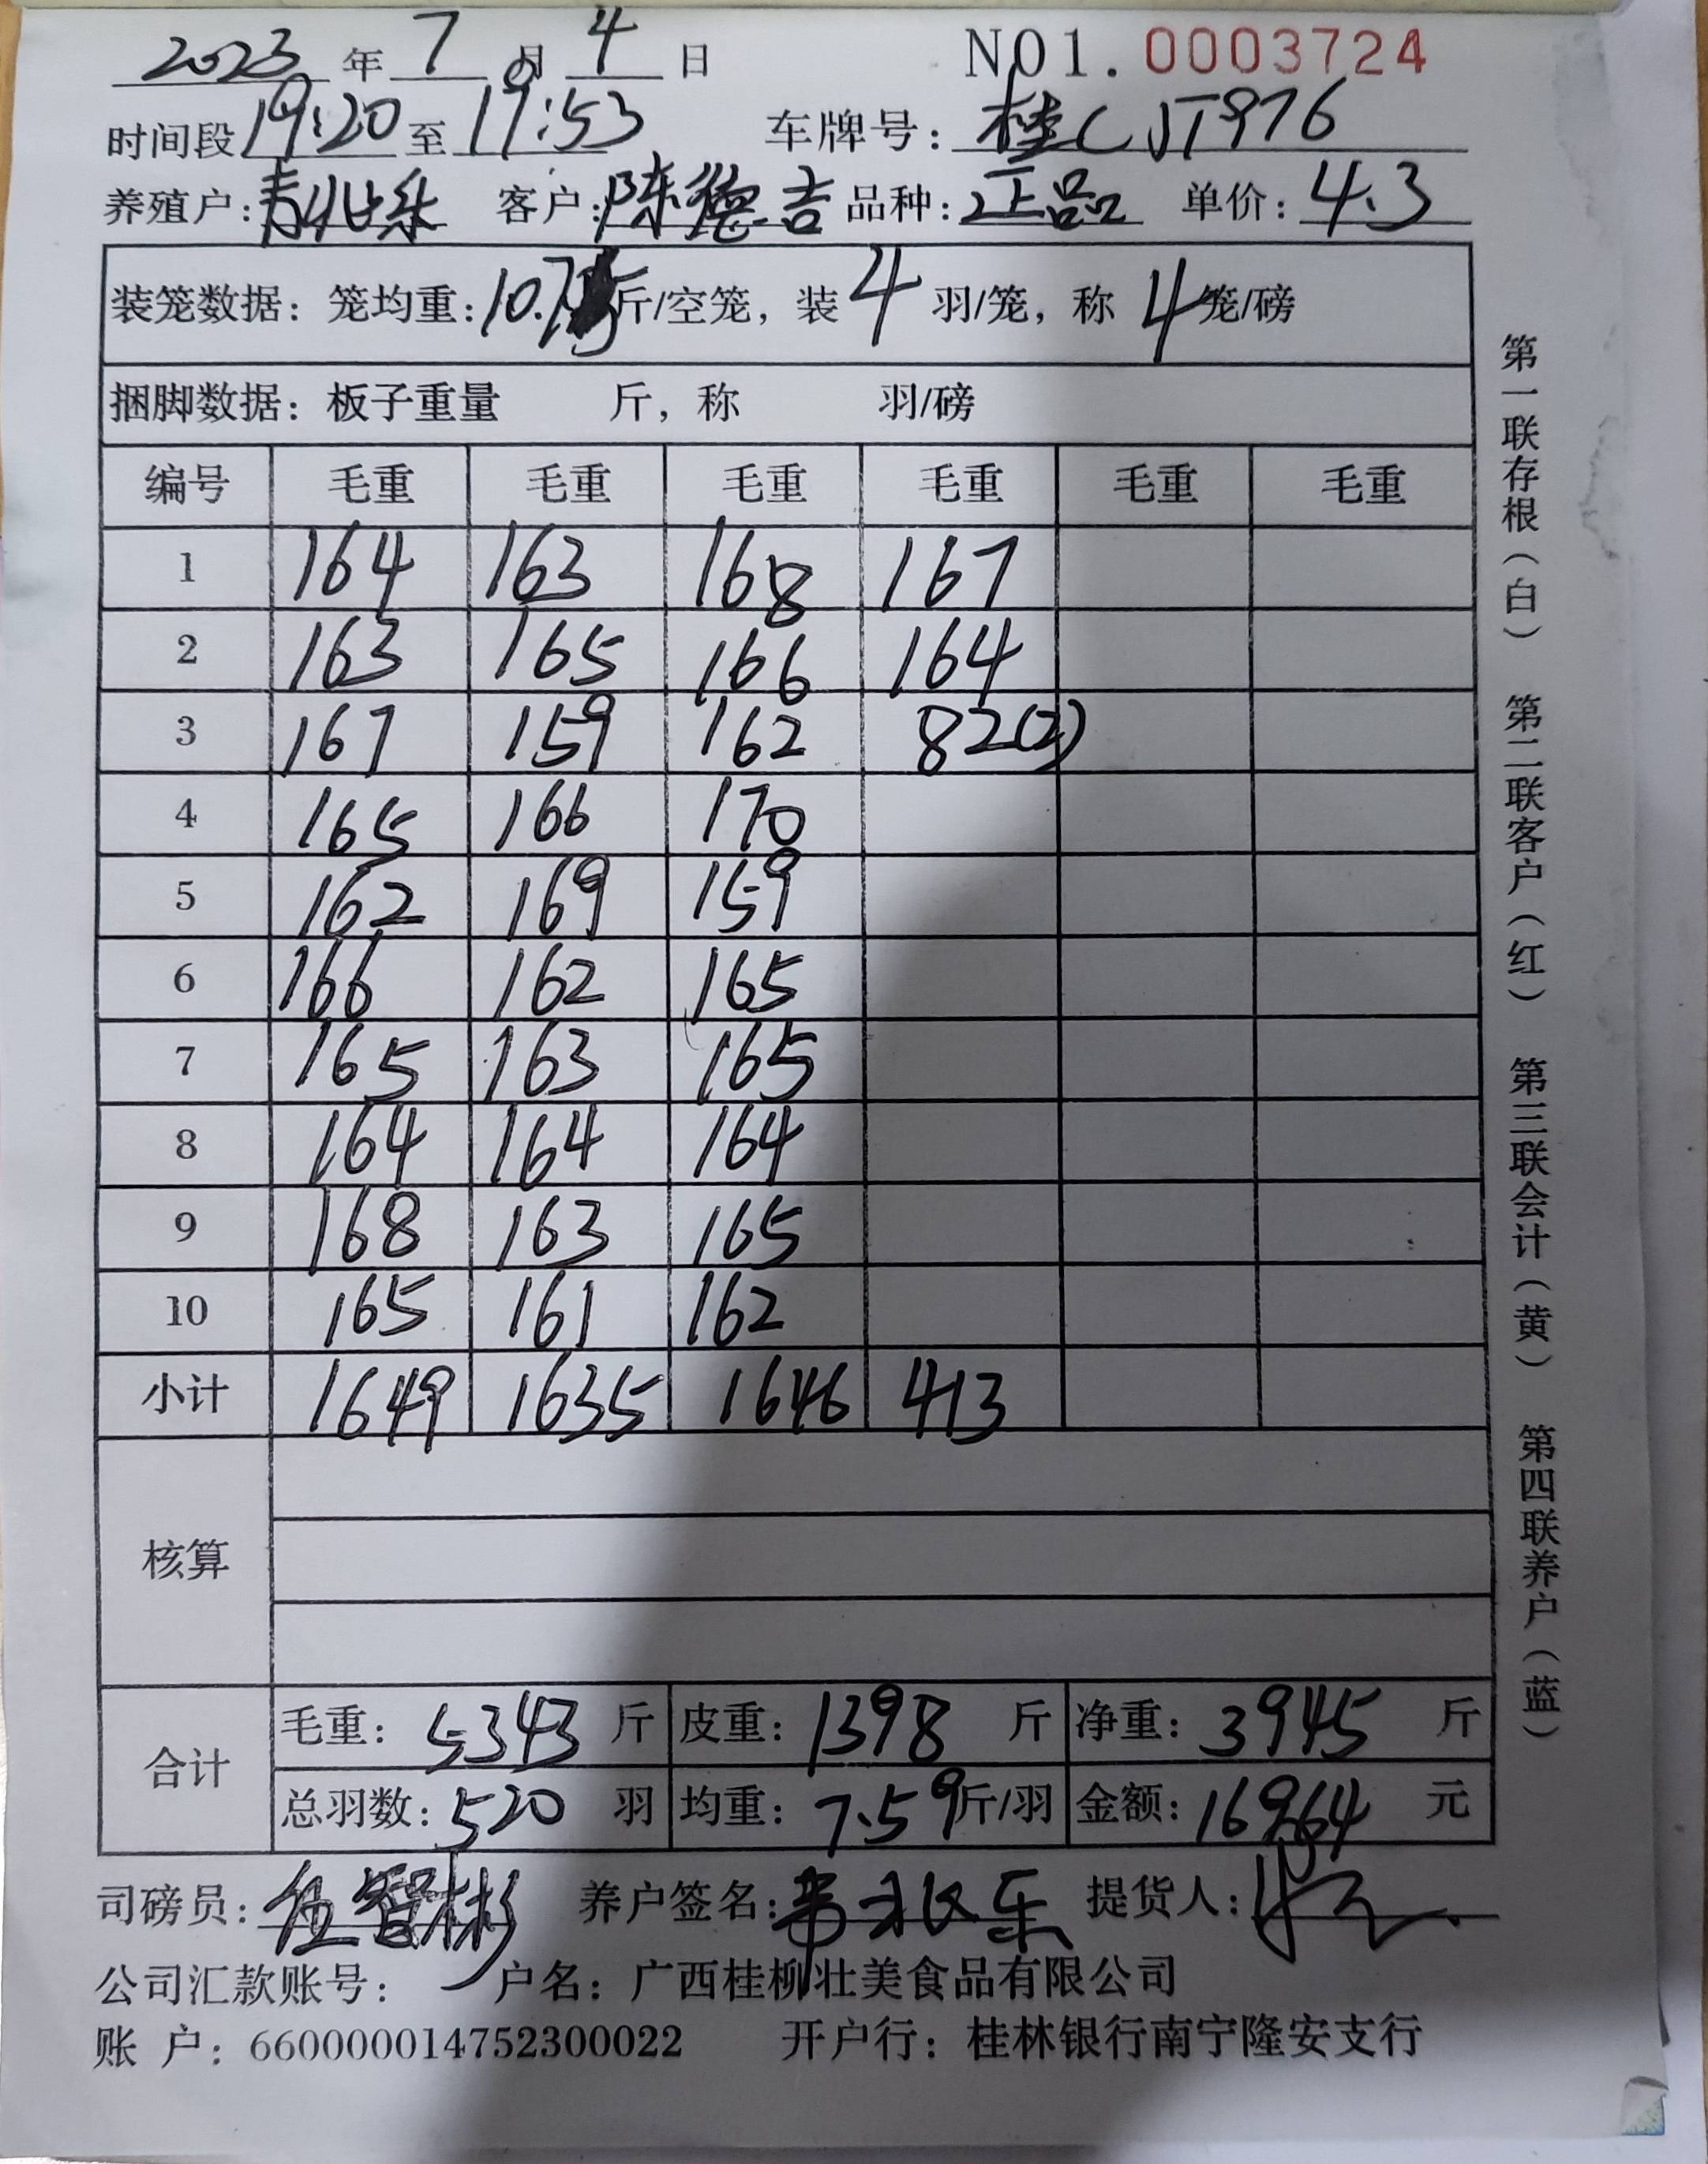 2023年7月4日 NO1.0003724
时间段19:20至19:53 车牌号:桂CJT976
养殖户:韦兆乐 客户:陈德吉 品种:正品 单价:4.3
装笼数据:笼均重:10.75斤/空笼,装4羽/笼,称4笼/磅
捆脚数据:板子重量 斤,称 羽/磅
编号 毛重 毛重 毛重 毛重 毛重 毛重
1 164 163 168 167
2 163 165 166 164
3 167 159 162 82(2)
4 165 166 170
5 162 169 159
6 166 162 165
7 165 163 165
8 164 164 164
9 168 163 165
10 165 161 162
小计 1649 1635 1646 413
核算
合计
毛重:5343斤 皮重:1398斤 净重:3945斤
总羽数:520羽 均重:7.59斤/羽 金额:16964元
司磅员:伍智彬 养户签名:韦兆乐 提货人:
公司汇款账号: 户名:广西桂柳壮美食品有限公司
账 户:660000014752300022 开户行:桂林银行南宁隆安支行
第一联存根(白) 第二联客户(红) 第三联会计(黄) 第四联养户(蓝)